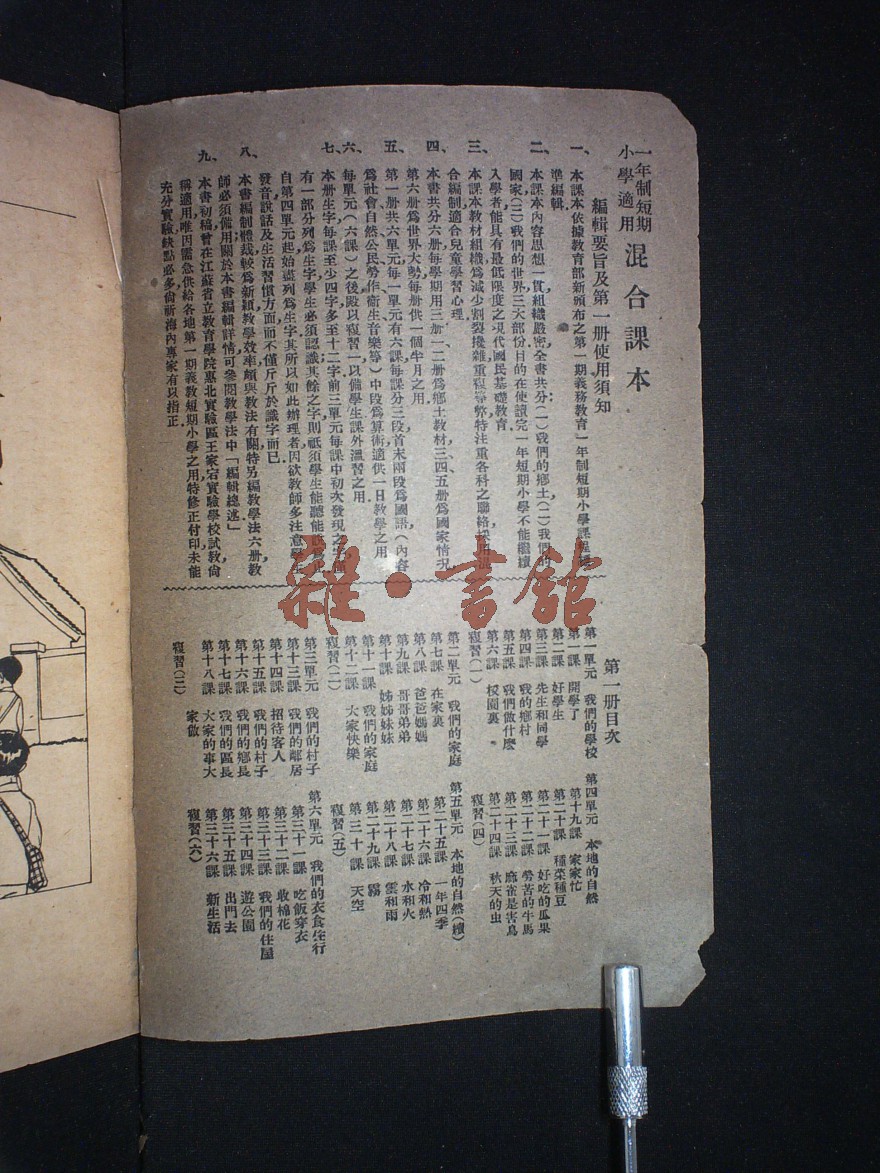 一年制短期
小學適用
混合課本
編輯要旨及第一册使用須知
一、本課本依據教育部新頒布之第一期義務教育一年制短期小學課程標
準編輯．
二、本課本內容思想一貫組織嚴密全書共分(一)我們的鄉土(二)我們的
國家(三)我們的世界三大部份目的在使讀完一年短期小學不能繼續
入學者能具有最低限度之現代國民基礎教育．
三、本課本教材組織爲減少割裂攙雜重複等弊特注重各科之聯絡採用混
合編制適合兒童學習心理．
四、本書共分六册每學期用三册一二册爲鄉土教材三四五册爲國家情況
第六册爲世界大勢每册供一個半月之用．
五、第一册共六單元每一單元有六課每課分三段首末兩段爲國語(內容
爲社會自然公民勞作衞生音樂等)中段爲算術適供一日教學之用．
六、每單元(六課)之後殿以複習一以備學生課外溫習之用．
七、本册生字每課至少四字多至十二字前三單元每課中初次發現之字
有一部分列爲生字學生必須認識其餘之字則祇須學生能聽能
自第四單元起始盡列爲生字其所以如此辦理者因欲教師多注意學生
發音說話及生活習慣方面而不僅斤斤於識字而已．
八、本書編制體裁較爲新穎教學效率頗與教法有關特另編教學法六册教
師必須備用關於本書編輯詳情可參閱教學法中「編輯總述」
九、本書初稿曾在江蘇省立教育學院惠北實驗區王家宕實驗學校試教尙
稱適用唯因需急供給各地第一期義教短期小學之用特修正付印未能
充分實驗缺點必多倘祈海內專家有以指正．
第一册目次
第一單元　我們的學校
第一課　開學了
第二課　好學生
第三課　先生和同學
第四課　我的鄉村
第五課　我們做什麼
第六課　校園裏
複習(一)
第二單元　我們的家庭
第七課　在家裏
第八課　爸爸媽媽
第九課　哥哥弟弟
第十課　姊姊妹妹
第十一課　我們的家庭
第十二課　大家快樂
複習(二)
第三單元　我們的村子
第十三課　我們的鄰居
第十四課　招待客人
第十五課　我們的村子
第十六課　我們的鄉長
第十七課　我們的區長
第十八課　大家的事大
家做
複習(三)
第四單元　本地的自然
第十九課　家家忙
第二十課　種菜種豆
第二十一課　好吃的瓜果
第二十二課　勞苦的牛馬
第二十三課　麻雀是害鳥
第二十四課　秋天的虫
複習(四)
第五單元　本地的自然(續)
第二十五課　一年四季
第二十六課　冷和熱
第二十七課　水和火
第二十八課　雲和雨
第二十九課　霧
第三十課　天空
複習(五)
第六單元　我們的衣食住行
第三十一課　吃飯穿衣
第三十二課　收棉花
第三十三課　我們的住屋
第三十四課　遊公園
第三十五課　出門去
第三十六課　新生活
複習(六)
雜·書館